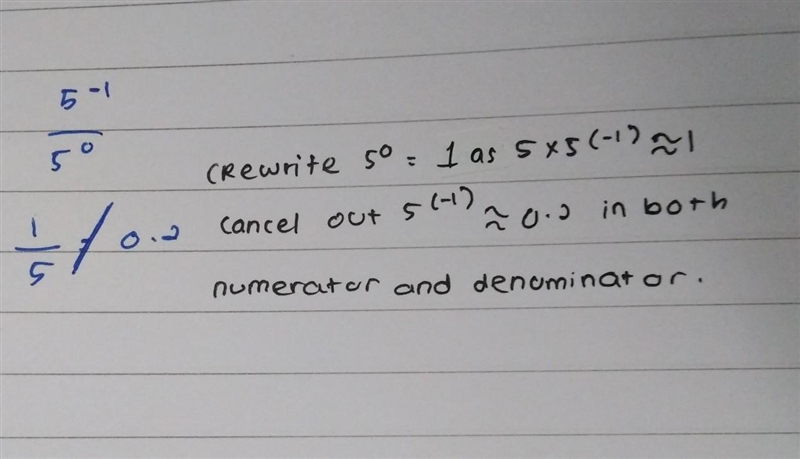 5⁻¹
5⁰
(Rewrite 5⁰ = 1 as 5 × 5⁽⁻¹⁾ ≈ 1
1
5 / 0.2
cancel out 5⁽⁻¹⁾ ≈ 0.2 in both
numerator and denominator.